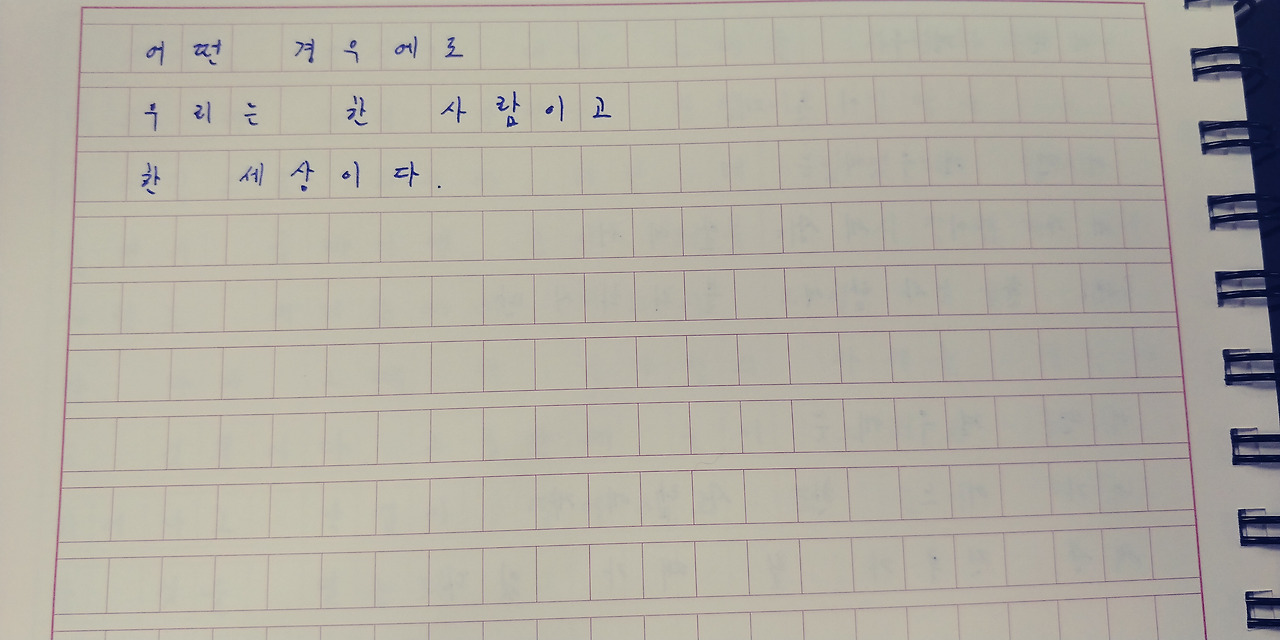 어떤 경우에로
우리는 한 사람이고
한 세상이다.